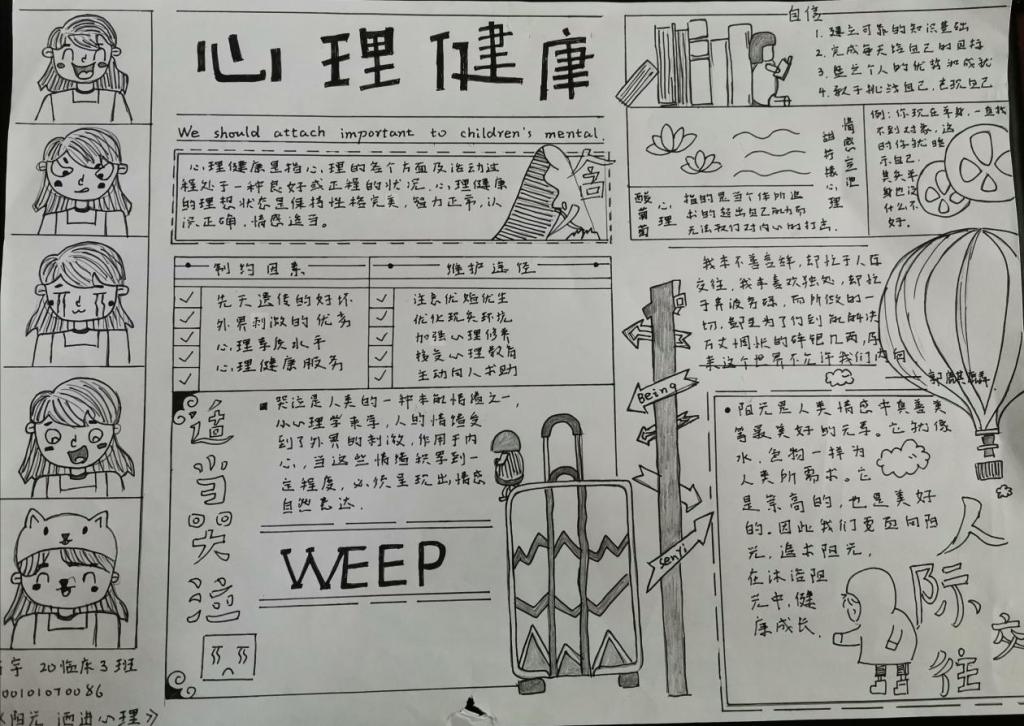 心理健康
We should attach important to children's mental.
心理健康是指心理的各个方面及活动过
程处于一种良好或正程的状况。心理健康
的理想状态是保持性格完美,智力正常,认
识正确,情感适当。
制约因素
先天遗传的好坏
外界刺激的优劣
心理素质水平
心理健康服务
维护途径
注意优婚优生
优化现实环境
加强心理修养
接受心理教育
主动向人求助
适当哭泣
哭泣是人类的一种本能情绪之一,
从心理学来看,人的情绪受
到了外界的刺激,作用于内
心,当这些情绪积累到一
定程度,必须呈现出情感
自然表达.
WEEP
自信
1. 建立可靠的知识基础
2. 完成每天给自己的目标
4. 敢于挑战自己,表现自己
情感空泡
甜柠檬心理
例:你现在单身,一直找
不到对象,这
时你就暗
示自己,
其实单
身也没
什么不
好。
酸葡萄
心理
指的是当个体所追
求的
我本不善言辞,却忙于人际
交往,我本喜欢独处,却忙
于奔波劳碌,而所做的一
切,都是为了得到能解决
万丈惆怅的碎银几两,原
来这个世界不允许我们内向
——郭麒麟
Being
senyi
阳光是人类情感中真善美
等最美好的元素。它犹像
水,食物一样为
人类所需求。它
是崇高的,也是美好
的。因此我们要面向阳
光,追求阳光,
在沐浴阳
光中,健
康成长.
人际交往
20临床3班
00101070086
《阳光 洒进心理》